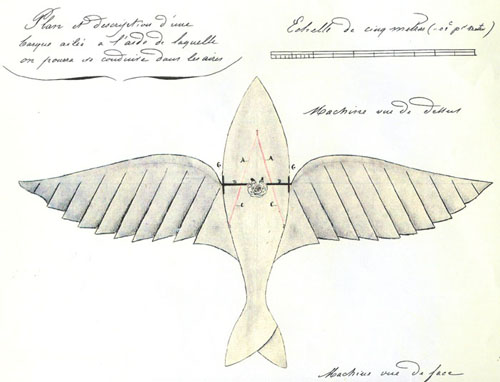 Plan et description d'une
barque ailée à l'aide de laquelle
on pourra se conduire dans les airs
Echelle de cinq mètres
Machine vue de dessus
G G
A A
E E
Machine vue de face